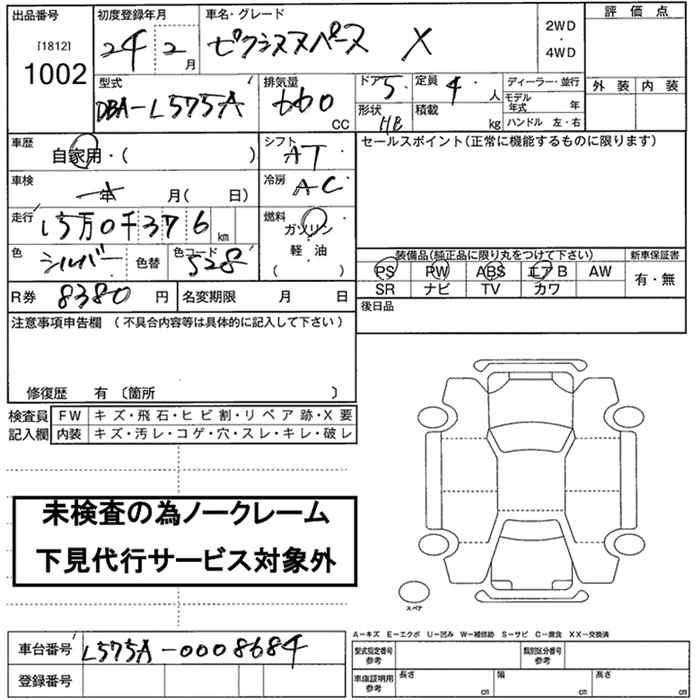 出品番号 初度登録年月 車名・グレード 評価点
[1812]
1002 24 2月 ゼクシスヌパース X 2WD・4WD
外装 内装
型式 排気量 ドア 5 定員 4人 ディーラー・並行
DBA-L575A 660CC 形状 HB 積載 kg モデル年式 年
ハンドル 左・右
車歴 自家用・( ) シフト AT セールスポイント(正常に機能するものに限ります)
車検 年 月( 日) 冷房 AC
走行 15万0千376km 燃料 ガソリン
軽油
( )
色 シルバー 色替 色コード S28
装備品(純正品に限り丸をつけて下さい) 新車保証書
PS PW ABS エアB AW 有・無
SR ナビ TV カワ
R券 8380円 名変期限 月 日
後日品
注意事項申告欄 (不具合内容等は具体的に記入して下さい)
修復歴 有 〔箇所 〕
検査員 FW キズ・飛石・ヒビ割・リペア跡・X要
記入欄 内装 キズ・汚レ・コゲ・穴・スレ・キレ・破レ
未検査の為ノークレーム
下見代行サービス対象外
スペア
A-キズ E-エクボ U-凹み W-補修跡 S-サビ C-腐食 XX-交換済
車台番号 L575A-0008684
型式指定番号 参考 類別区分番号 参考
登録番号
車庫証明用 参考 長さ cm 幅 cm 高さ cm